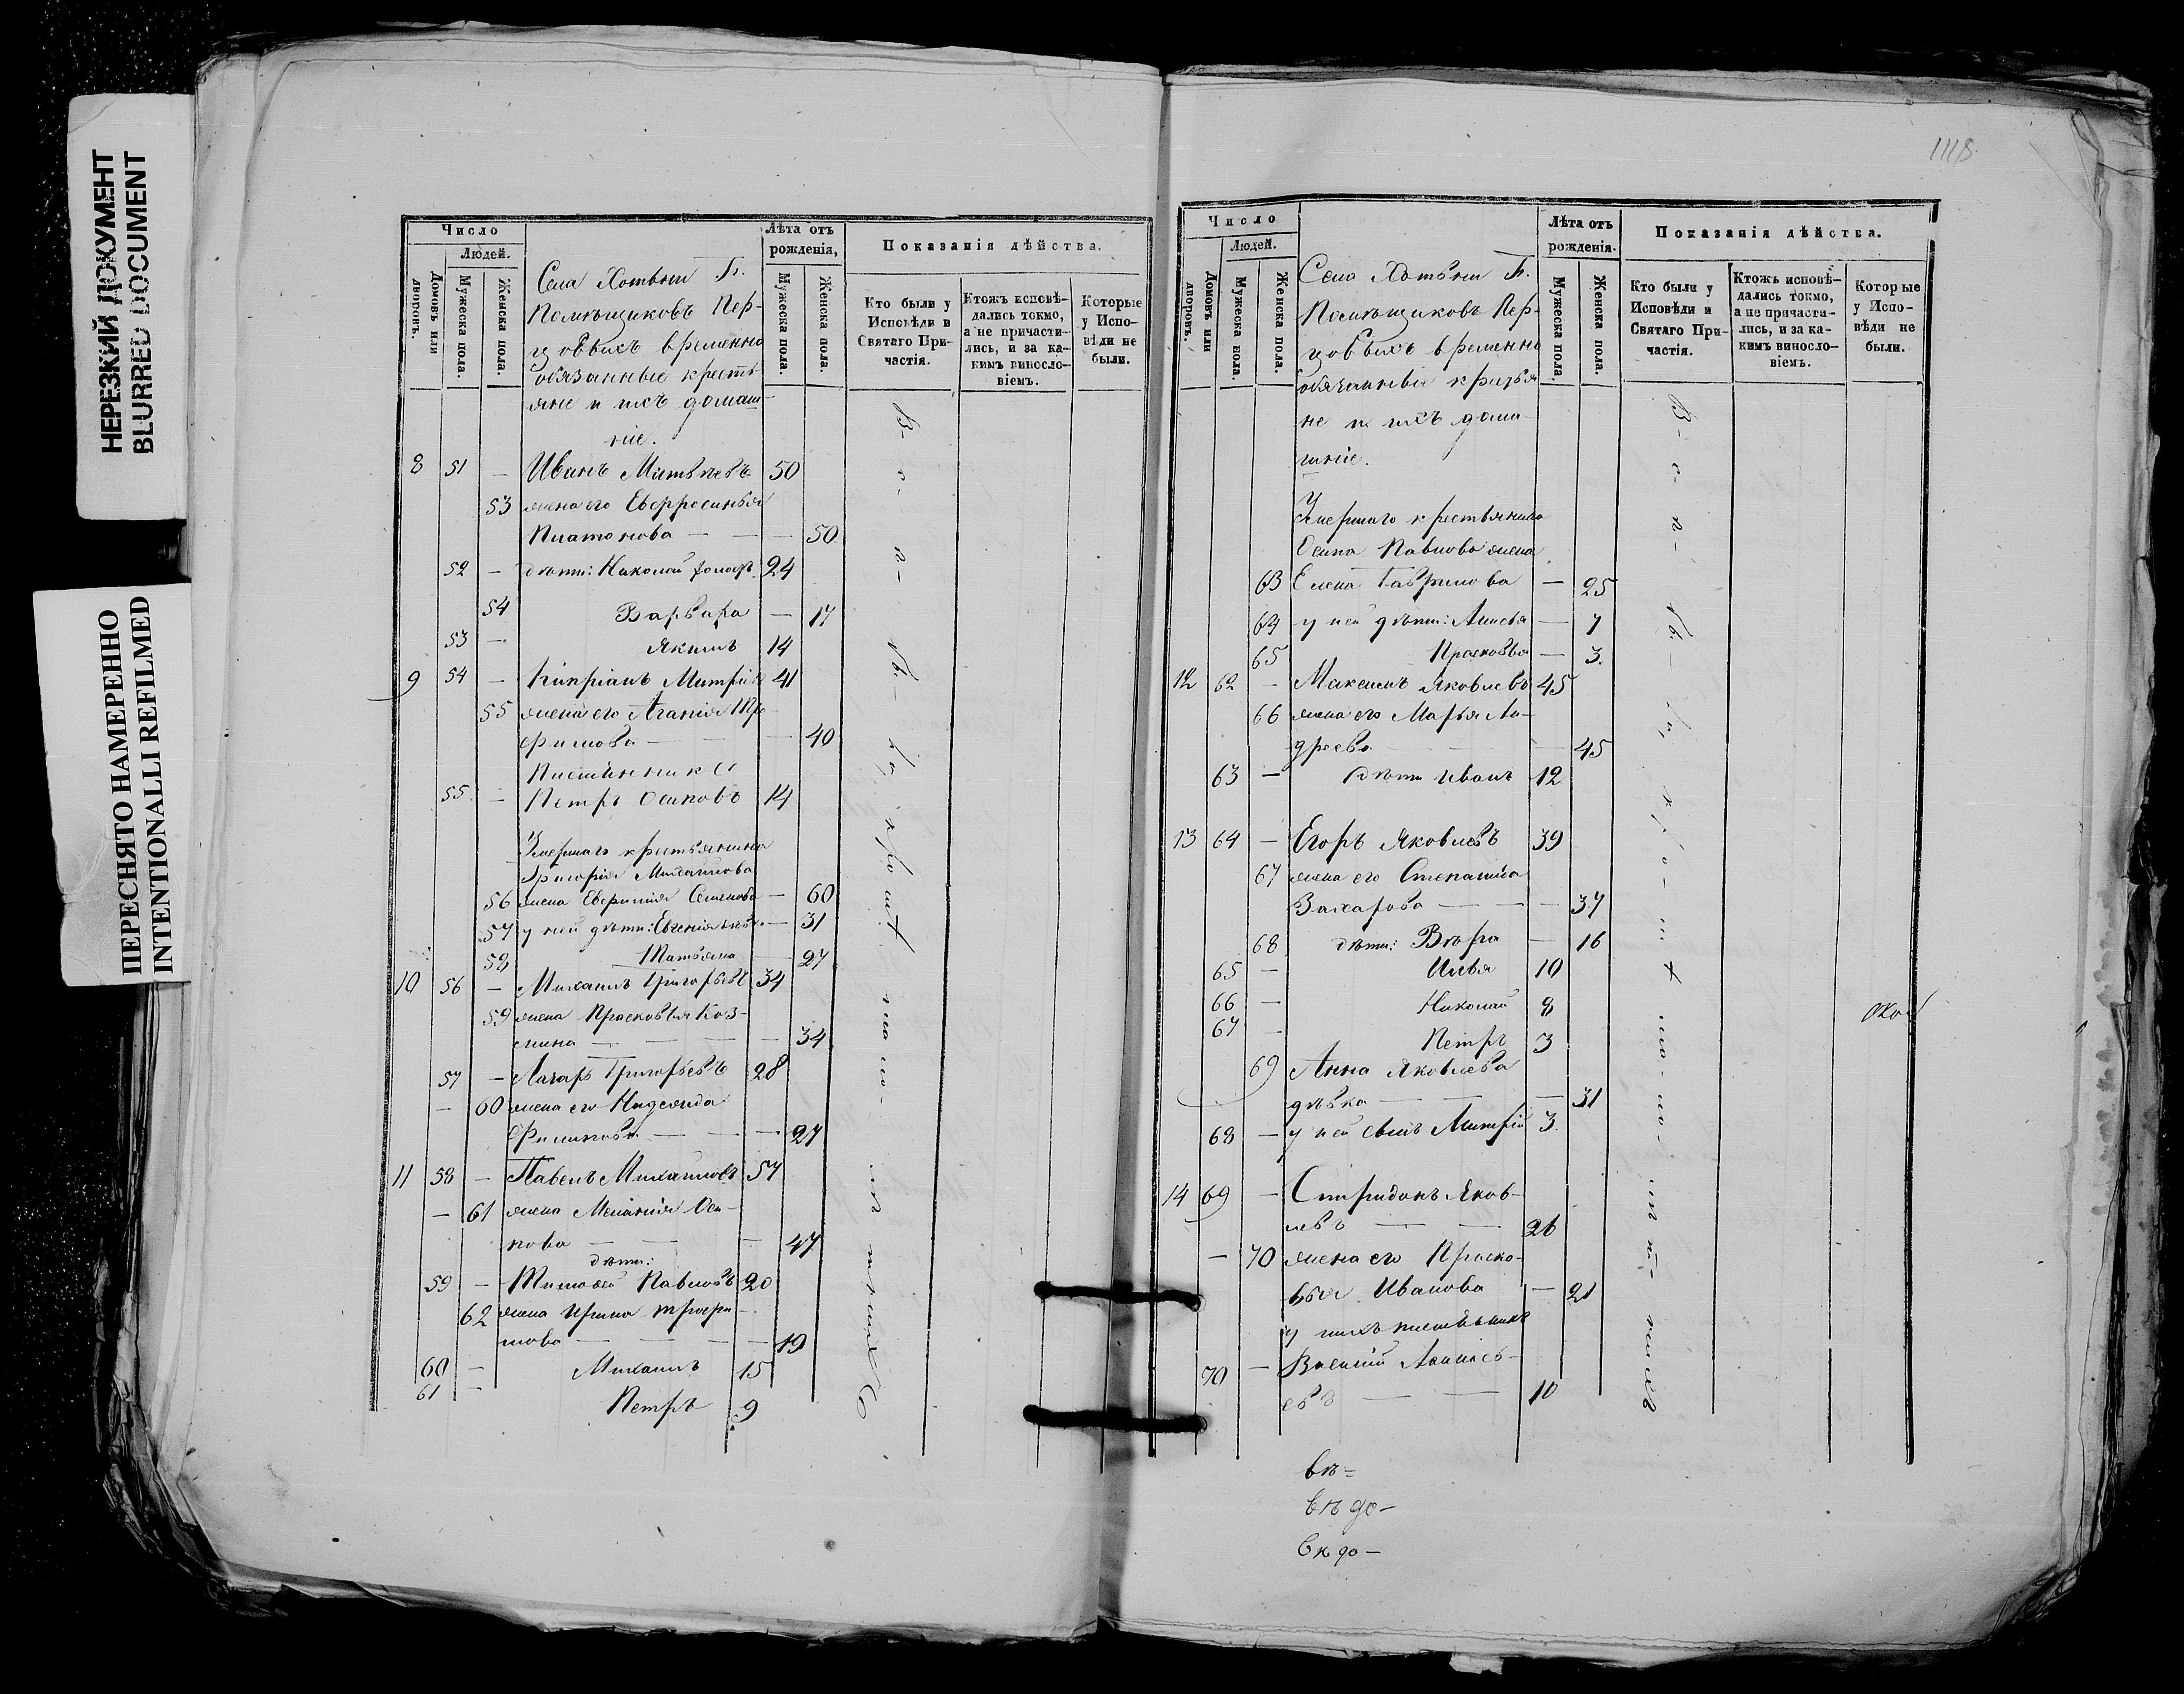 НЕРЕЗКИЙ ДОКУМЕНТ
BLURRED DOCUMENT
ПЕРЕСНЯТО НАМЕРЕННО
INTENTIONALLI REFILMED
Число
Людей.
Домовъ или дворовъ.
Мужеска пола.
Женска пола.
Лѣта отъ рожденія,
Мужеска пола.
Женска пола.
Показанія дѣйства.
Кто были у Исповѣди и Святаго Причастія.
Ктожъ исповѣдались токмо, а не причастились, и за какимъ винословіемъ.
Которые у Исповѣди не были.
Села
Помѣщиковъ Пер-
цовыхъ временно
обязанные кресть
яне и ихъ домаш-
ніе.
8 51 — Иванъ Матвѣевъ 50
53 жена его Евфросинья
Платонова — — — 50
52 — дѣти: Николай холост. 24
54 Варвара — 17
53 — Якимъ 14
9 54 — Кипріанъ 41
55 жена его Агапія Тро-
фимова — — 40
Племянникъ
55 — Петръ Осиповъ 14
Умершаго крестьянина
Григорія Михайлова
56 жена Евфимія Семенова — 60
57 у ней дѣти: Евгенія дѣв. — 31
58 Татьяна — 27
10 56 — Михаилъ Григорьевъ 34
59 жена Прасковья Коз-
мина — — — 34
57 — Лазарь Григорьевъ 28
— 60 жена его Надежда
Филипова — — — 27
11 58 — Павелъ Михайловъ 57
— 61 жена Меланія Оси-
пова — — — 47
дѣти:
59 — Тимофей Павловъ 20
62 жена Ирина Трофи-
мова — — — 19
60 — Михаилъ 15
61 — Петръ 9
1118
Число
Людей.
Домовъ или дворовъ.
Мужеска пола.
Женска пола.
Лѣта отъ рожденія.
Мужеска пола.
Женска пола.
Показанія дѣйства.
Кто были у Исповѣди и Святаго Причастія.
Ктожъ исповѣдались токмо, а не причастились, и за какимъ винословіемъ.
Которые у Исповѣди не были.
Село
Помѣщиковъ Пер-
цовыхъ временно
обязанные крестья
не и ихъ дома-
шніе.
Умершаго крестьянина
Осипа Павлова жена
63 Елена Гаврилова — 25
64 у ней дѣти: Анисья — 7
65 Прасковья — 3.
12 62 — Максимъ Яковлевъ 45
66 жена его Марья Ан-
дреева — 45
63 — дѣти Иванъ 12
13 64 — Егоръ Яковлевъ 39
67 жена его Степанида
Захарова — — — 37
68 дѣти: Вѣра — 16
65 — Илья 10
66 — Николай 8
67 — Петръ 3
69 Анна Яковлева
дѣвка — — — 31
68 — у ней сынъ Митрій 3.
14 69 — Спиридонъ Яков-
левъ — — 26
— 70 жена его Праско-
вья Иванова — 21
у нихъ племянникъ
70 — Василій
евъ — — 10
вѣ-
вѣдо-